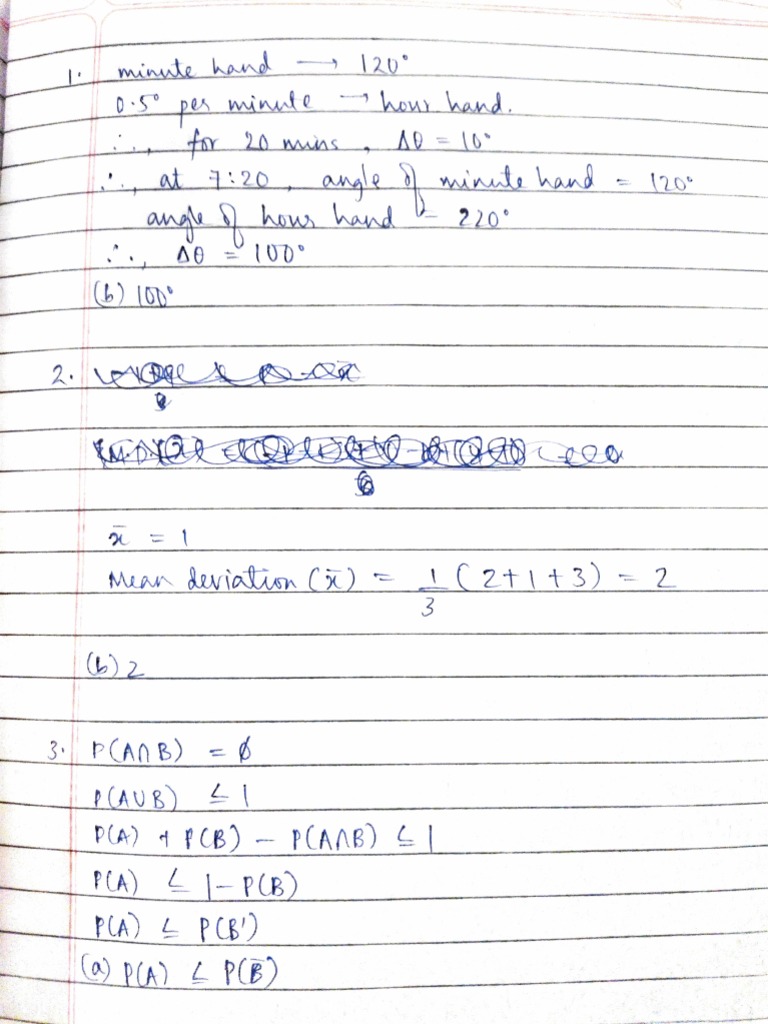 1. minute hand → 120°
0.5° per minute → hour hand.
∴, for 20 mins, Δθ = 10°
∴, at 7:20, angle of minute hand = 120°
angle of hour hand = 220°
∴, Δθ = 100°
(b) 100°
2.
x̄ = 1
Mean deviation (x̄) = 1/3 (2+1+3) = 2
(b) 2
3. P(A∩B) = ϕ
P(A∪B) ≤ 1
P(A) + P(B) - P(A∩B) ≤ 1
P(A) ≤ 1-P(B)
P(A) ≤ P(B')
(a) P(A) ≤ P(B̄)